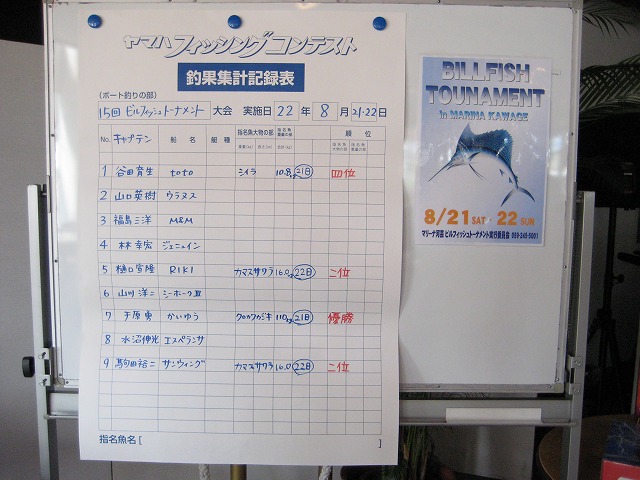 ヤマハフィッシングコンテスト
釣果集計記録表
(ボート釣りの部)
15回 ビルフィッシュトーナメント 大会 実施日 22 年 8 月 21.22 日
No. キャプテン 船名 艇種 指名魚大物の部 指名魚重量の部 順位
1 谷田育生 toto シイラ 10.8kg 21日 四位
2 山口英樹 ウラヌス
3 福島三洋 M&M
4 林幸宏 ジェニュイン
5 樋口宮隆 RIKI カマスサワラ 16.0kg 22日 二位
6 山川洋二 シーホークⅢ
7 于原勇 かいゆう クロカワカジキ 110kg 21日 優勝
8 水沼伸光 エスペランサ
9 駒田裕二 サンウィング カマスサワラ 16.0 22日 二位
指名魚名 [ ]
BILLFISH
TOUNAMENT
in MARINA KAWAGE
8/21 SAT・22 SUN
マリーナ河芸 ビルフィッシュトーナメント実行委員会 059-245-5001